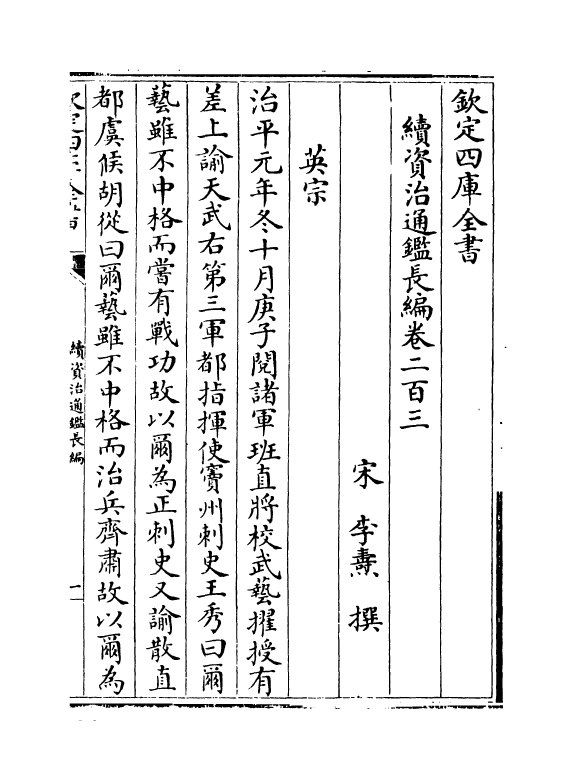 欽定四庫全書
續資治通鑑長編卷二百三
宋 李燾 撰
英宗
治平元年冬十月庚子閱諸軍班直將校武藝擢授有
差上諭天武右第三軍都指揮使竇州刺史王秀曰爾
藝雖不中格而嘗有戰功故以爾為正刺史又諭散直
都虞候胡從曰爾藝雖不中格而治兵齊肅故以爾為
欽定四庫全書
續資治通鑑長編
一